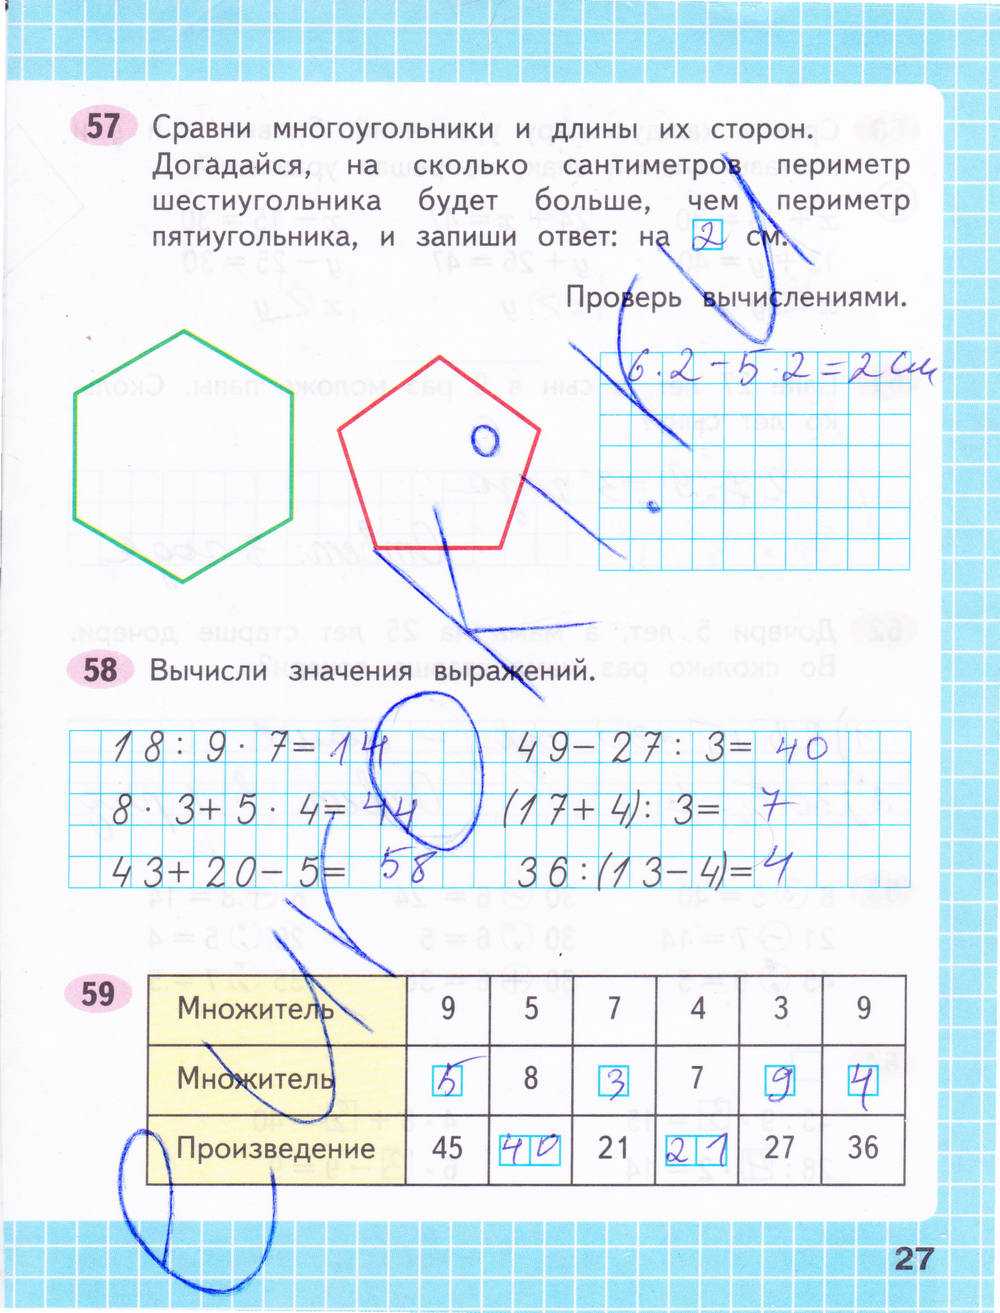 57 Сравни многоугольники и длины их сторон.
Догадайся, на сколько сантиметров периметр
шестиугольника будет больше, чем периметр
пятиугольника, и запиши ответ: на 2 см.
Проверь вычислениями.
6·2-5·2=2см
58 Вычисли значения выражений.
18:9·7=14 49-27:3=40
8·3+5·4=44 (17+4):3=7
43+20-5=58 36:(13-4)=4
59
Множитель 9 5 7 4 3 9
Множитель 5 8 3 7 9 4
Произведение 45 40 21 21 27 36
27